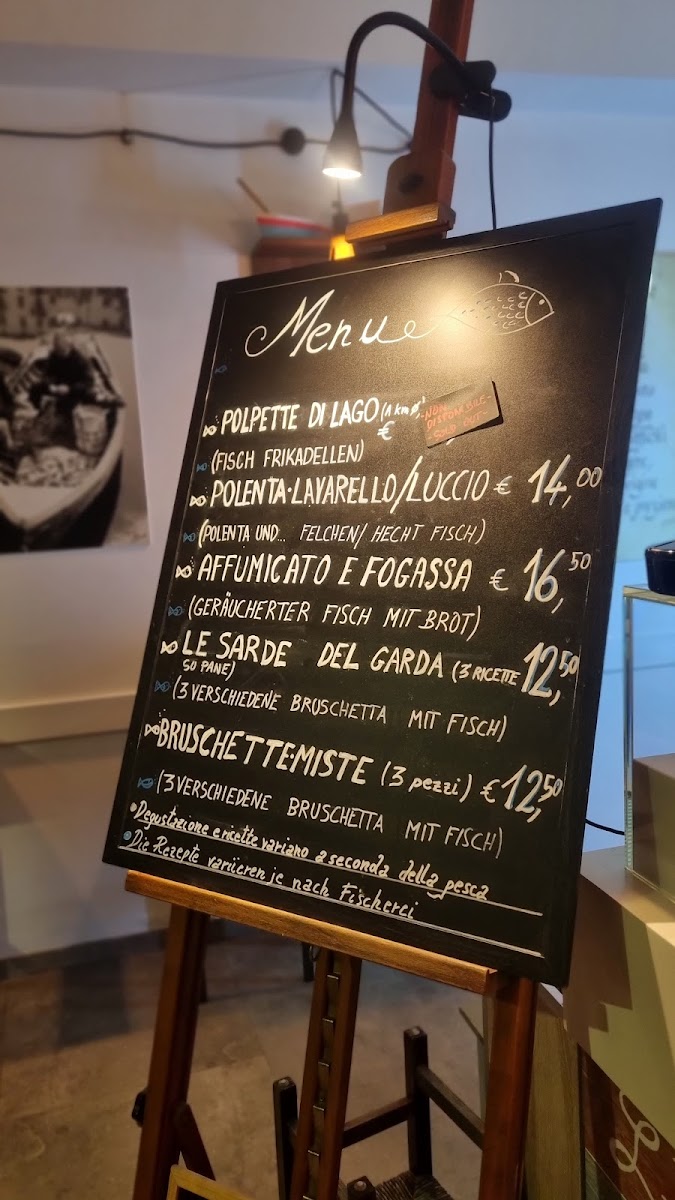 Menue
POLPETTE DI LAGO (1 km Ø)
€
-NON-
DISPONIBILE-
-SOLD OUT-
(FISCH FRIKADELLEN)
POLENTA·LAVARELLO/LUCCIO € 14,00
(POLENTA UND... FELCHEN/ HECHT FISCH)
AFFUMICATO E FOGASSA € 16,50
(GERÄUCHERTER FISCH MIT BROT)
LE SARDE DEL GARDA (3 RICETTE 12,50
SU PANE)
(3 VERSCHIEDENE BRUSCHETTA MIT FISCH)
BRUSCHETTE·MISTE (3 pezzi) € 12,50
(3 VERSCHIEDENE BRUSCHETTA MIT FISCH)
Degustazione e ricette variano a seconda della pesca
Die Rezepte variieren je nach Fischerei